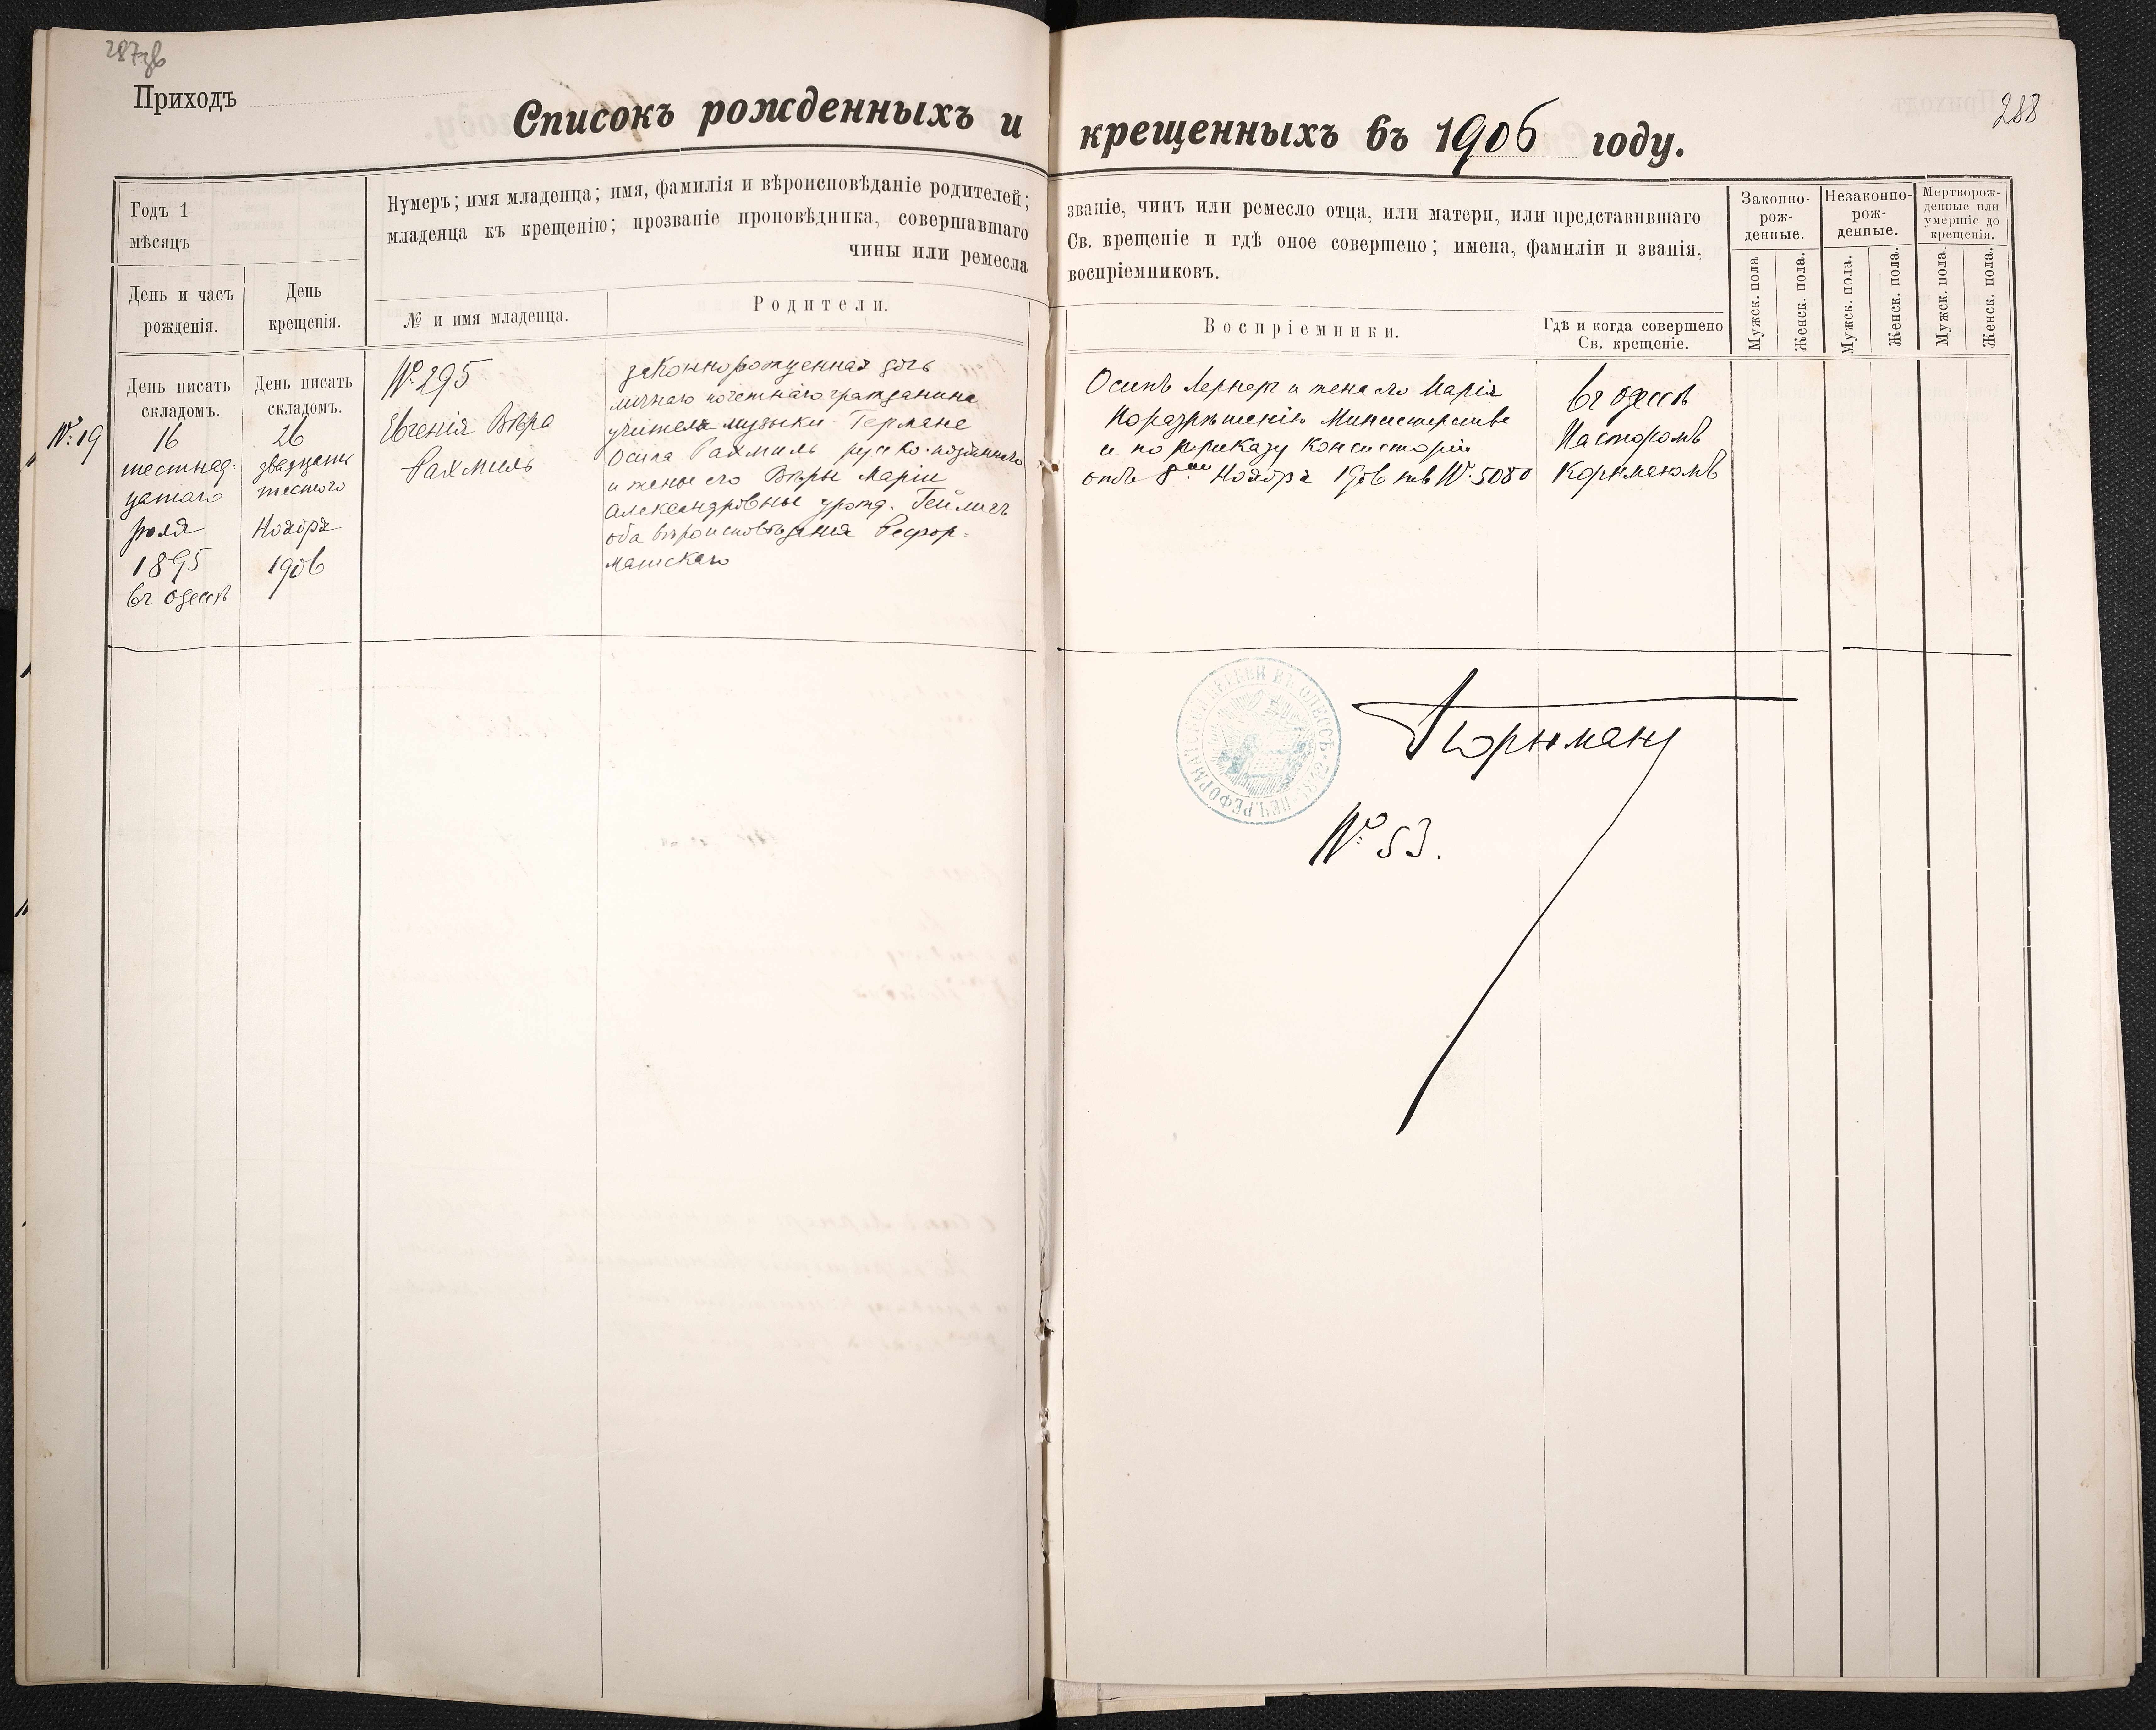 287об
Приходъ
Списокъ рожденныхъ и крещенныхъ въ 1906 году.
288
Годъ 1
мѣсяцъ
Нумеръ; имя младенца; имя, фамилія и вѣроисповѣданіе родителей; званіе, чинъ или ремесло отца, или матери, или представившаго
младенца къ крещенію; прозваніе проповѣдника, совершавшаго Св. крещеніе и гдѣ оное совершено; имена, фамиліи и званія,
чины или ремесла воспріемниковъ.
Законно-
рож-
денные.
Незаконно-
рож-
денные.
Мертворож-
денные или
умершіе до
крещенія.
День и часъ
рожденія.
День
крещенія.
№ и имя младенца.
Родители.
Воспріемники.
Гдѣ и когда совершено
Св. крещеніе.
Мужск. пола
Женск. пола.
Мужск. пола.
Женск. пола.
Мужск. пола.
Женск. пола.
№ 19
День писать
складомъ.
16
шестнад-
цатаго
Іюля
1895
въ Одессѣ
День писать
складомъ.
26
двадцать
шестого
Ноября
1906
№ 295
Евгенія Вѣра
Рахмиль
законнорожденная дочь
личнаго почетнаго гражданина
учителя музыки Германа
Осипа Рахмиль русско-подданнаго
и жены его Вѣры Маріи
Александровны урожд. Гейлигъ
оба вѣроисповѣданія Рефор-
матскаго
Осипъ Лернеръ и жена его Марія
По разрѣшенію Министерства
и по приказу Консисторіи
отъ 8го Ноября 1906 № 5080
въ Одессѣ
Пасторомъ
Корнманомъ
РЕФОРМАТСКОЙ ЦЕРКВИ ВЪ ОДЕССѢ
Корнманъ
№ 53.